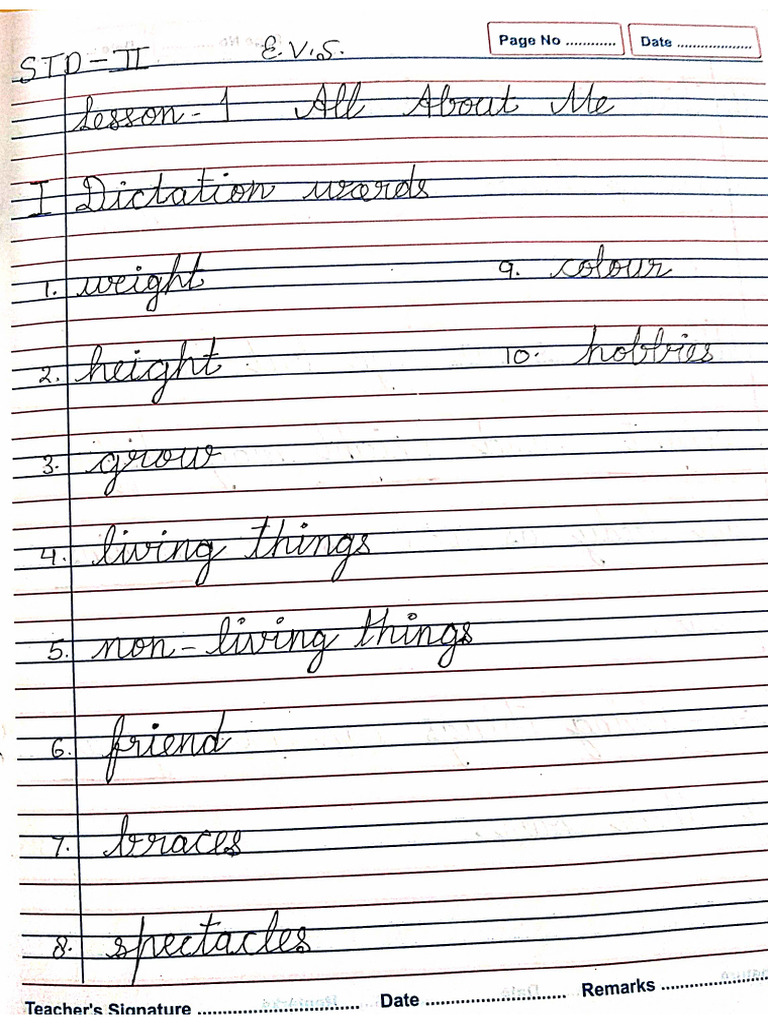 Page No ............ Date ....................
STD - II E.V.S.
Lesson - 1 All About Me
I Dictation words
1. weight 9. colour
2. height 10. hobbies
3. grow
4. living things
5. non - living things
6. friend
7. braces
8. spectacles
Teacher's Signature ............................ Date ........................ Remarks ....................